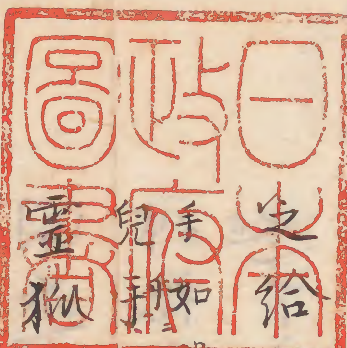 日本
政府
圖書
之給
手如
兒
靈